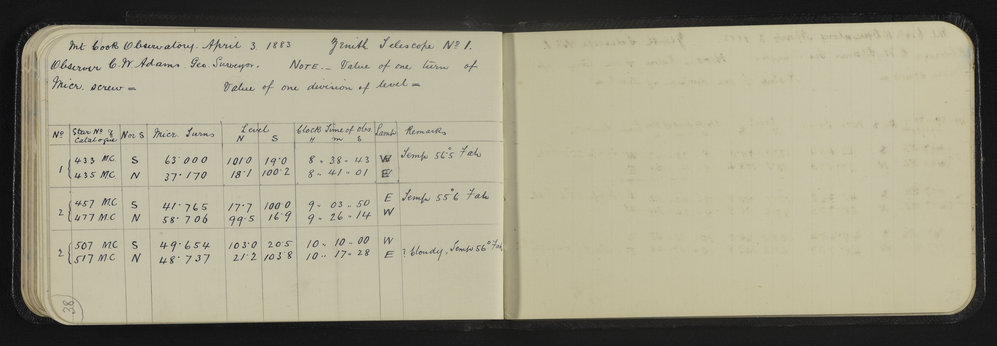 Mt Cook Observatory. April 3 1883 Zenith Telescope No 1.
Observer C.W. Adams. Geo. Surveyor. NOTE.- Value of one turn of
Micr. screw = Value of one division of level =
No Star No & Catalogue N or S Micr. Turns Level N S Clock Time of Obs. H m s Lamp Remarks
1 { 433 MC S 63.000 101.0 19.0 8 .. 38 .. 43 W Temp 56°.5 Fah
435 MC N 37.170 18.1 100.2 8 .. 41 .. 01 E
2 { 457 MC S 41.765 17.7 100.0 9 .. 03 .. 50 E Temp 55°.6 Fah
477 MC N 58.706 99.5 16.9 9 .. 26 .. 14 W
2 { 507 MC S 49.654 103.0 20.5 10 .. 10 .. 00 W
517 MC N 48.737 21.2 103.8 10 .. 17 .. 28 E ? Cloudy. Temp 56° Fah
38